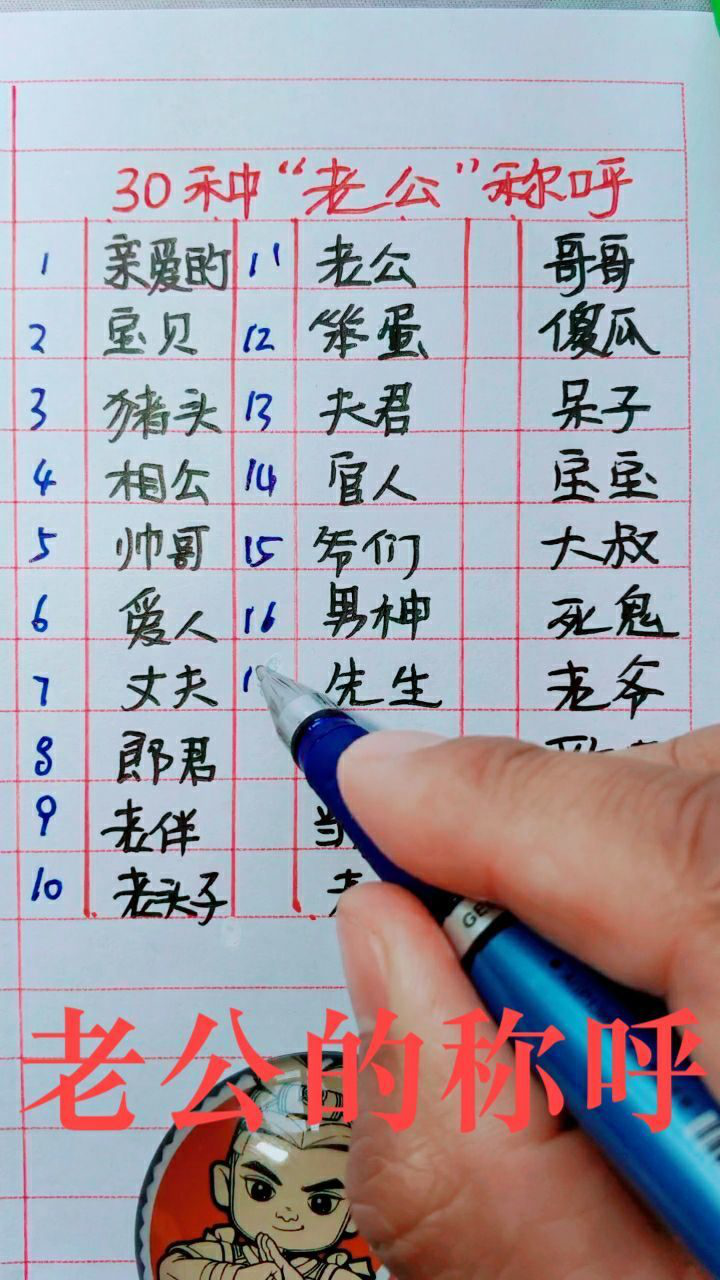 30种“老公”称呼
1 亲爱的 11 老公 哥哥
2 宝贝 12 笨蛋 傻瓜
3 猪头 13 夫君 呆子
4 相公 14 官人 宝宝
5 帅哥 15 爷们 大叔
6 爱人 16 男神 死鬼
7 丈夫 1 先生 老爷
8 郎君
9 老伴 当
10 老头子 老
老公的称呼